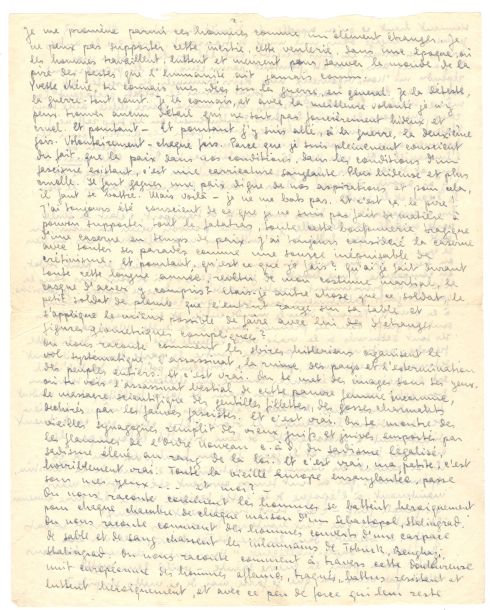 Je me promène parmi ces hommes comme un élément étranger. Je
ne peux pas supporter cette inertie, cette veulerie, dans une époque, où
les hommes travaillent, luttent et meurent pour sauver le monde de la
pire des pestes que l'humanité ait jamais connu.
Yvette chérie, tu connais mes idées sur la guerre, en général. Je la déteste,
la guerre, tout court. Je la connais, et avec la meilleure volonté je n'y
peux trouver aucun détail qui ne soit pas foncièrement hideux et
cruel. Et pourtant – Et pourtant j'y suis allé, à la guerre, la deuxième
fois. Volontairement – chaque fois. Parce que je suis pleinement conscient
du fait, que la paix dans nos conditions, dans les conditions d'un
fascisme existant, c'est une carricature sanglante. Plus hideuse et plus
cruelle. Il faut gagner une paix digne de nos aspirations et pour cela,
il faut se battre. Mais voilà – je ne me bats pas. Et c'est ça le pire!
J'ai toujours été conscient de ce que je ne suis pas fait de matière à
pouvoir supporter tout le fatras, toute cette bouffonnerie tragique
d'une caserne en temps de paix. J'ai toujours considéré la caserne
avec toutes ses parades comme une source inépuisable de
crétinisme. Et pourtant, qu'est ce que je fais? qu'ai je fait durant
toute cette longue année, revêtu de mon costume martial, le
casque d'acier y compris? Etais-je autre chose que ce soldat, le
petit soldat de plomb que l'enfant range sur sa table et
s'applique le mieux possible de faire avec lui des étranges
figures géométriques compliquées?
On nous raconte comment les sbires hitlériens organisent le
vol systématique, l'assassinat, la ruine des pays et l'extermination
des peuples entiers. Et c'est vrai. On te met des images sous les yeux,
où tu vois l'assassinat bestial de cette pauvre femme inconnue,
le massacre scientifique des gentilles fillettes, des gosses charmants
déchirés par les fauves fascistes. Et c'est vrai. On te montre des
vieilles synagogues remplit des vieux juifs et juives emportés par
les flammes de l'Ordre Nouveau c.à.d. du sadisme légalisé,
sadisme élevé au rang de la loi. Et c'est vrai, ma petite; c'est
horriblement vrai. Toute la vieille Europe ensanglantée, passe
sous mes yeux... – et moi?
On nous raconte comment les hommes se battent héroiquement
pour chaque chambre de chaque maison d'un Sebastopol, Stalingrad.
On nous raconte comment des hommes couverts d'une carpace
de sable et de sang chassent les inhumains de Tobruck, Benghazi,
Stalingrad. On nous raconte comment à travers cette douloureuse
nuit européenne des hommes affamés, traqués, battus résistent et
luttent héroiquement, et avec ce peu de force qui leur reste